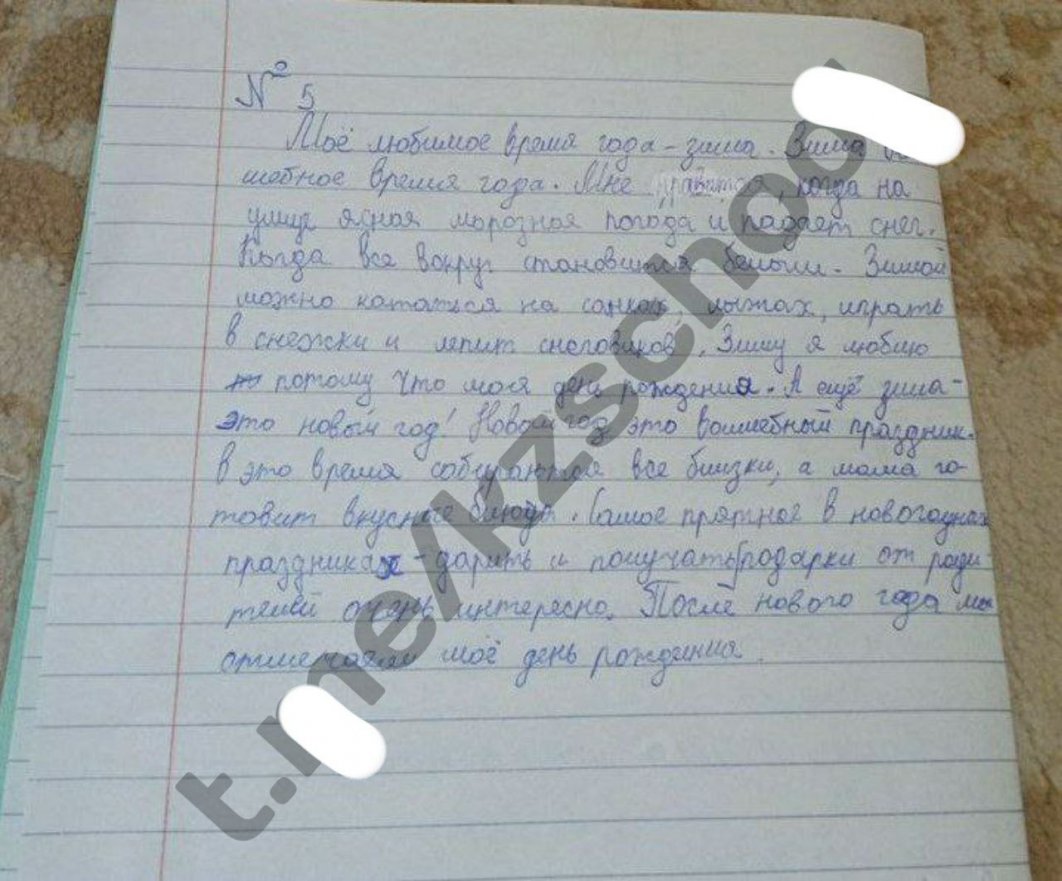 № 5
Моё любимое время года - зима. Зима
шебное время года. Мне нравится, когда на
улице ясная морозная погода и падает снег.
Когда все вокруг становится белым. Зимой
можно кататься на санках, лыжах, играть
в снежки и лепит снеговиков. Зиму я люблю
потому что моя день рождения. А ещё зима -
это новый год! Новый год это волшебный праздник.
В это время собираются все близки, а мама го-
товит вкусные блюда. Самое прятное в новогодних
праздниках - дарить и получать подарки от роди-
телей очень интересно. После нового года мы
отмечаем моё день рождения.
t.me/kzschool